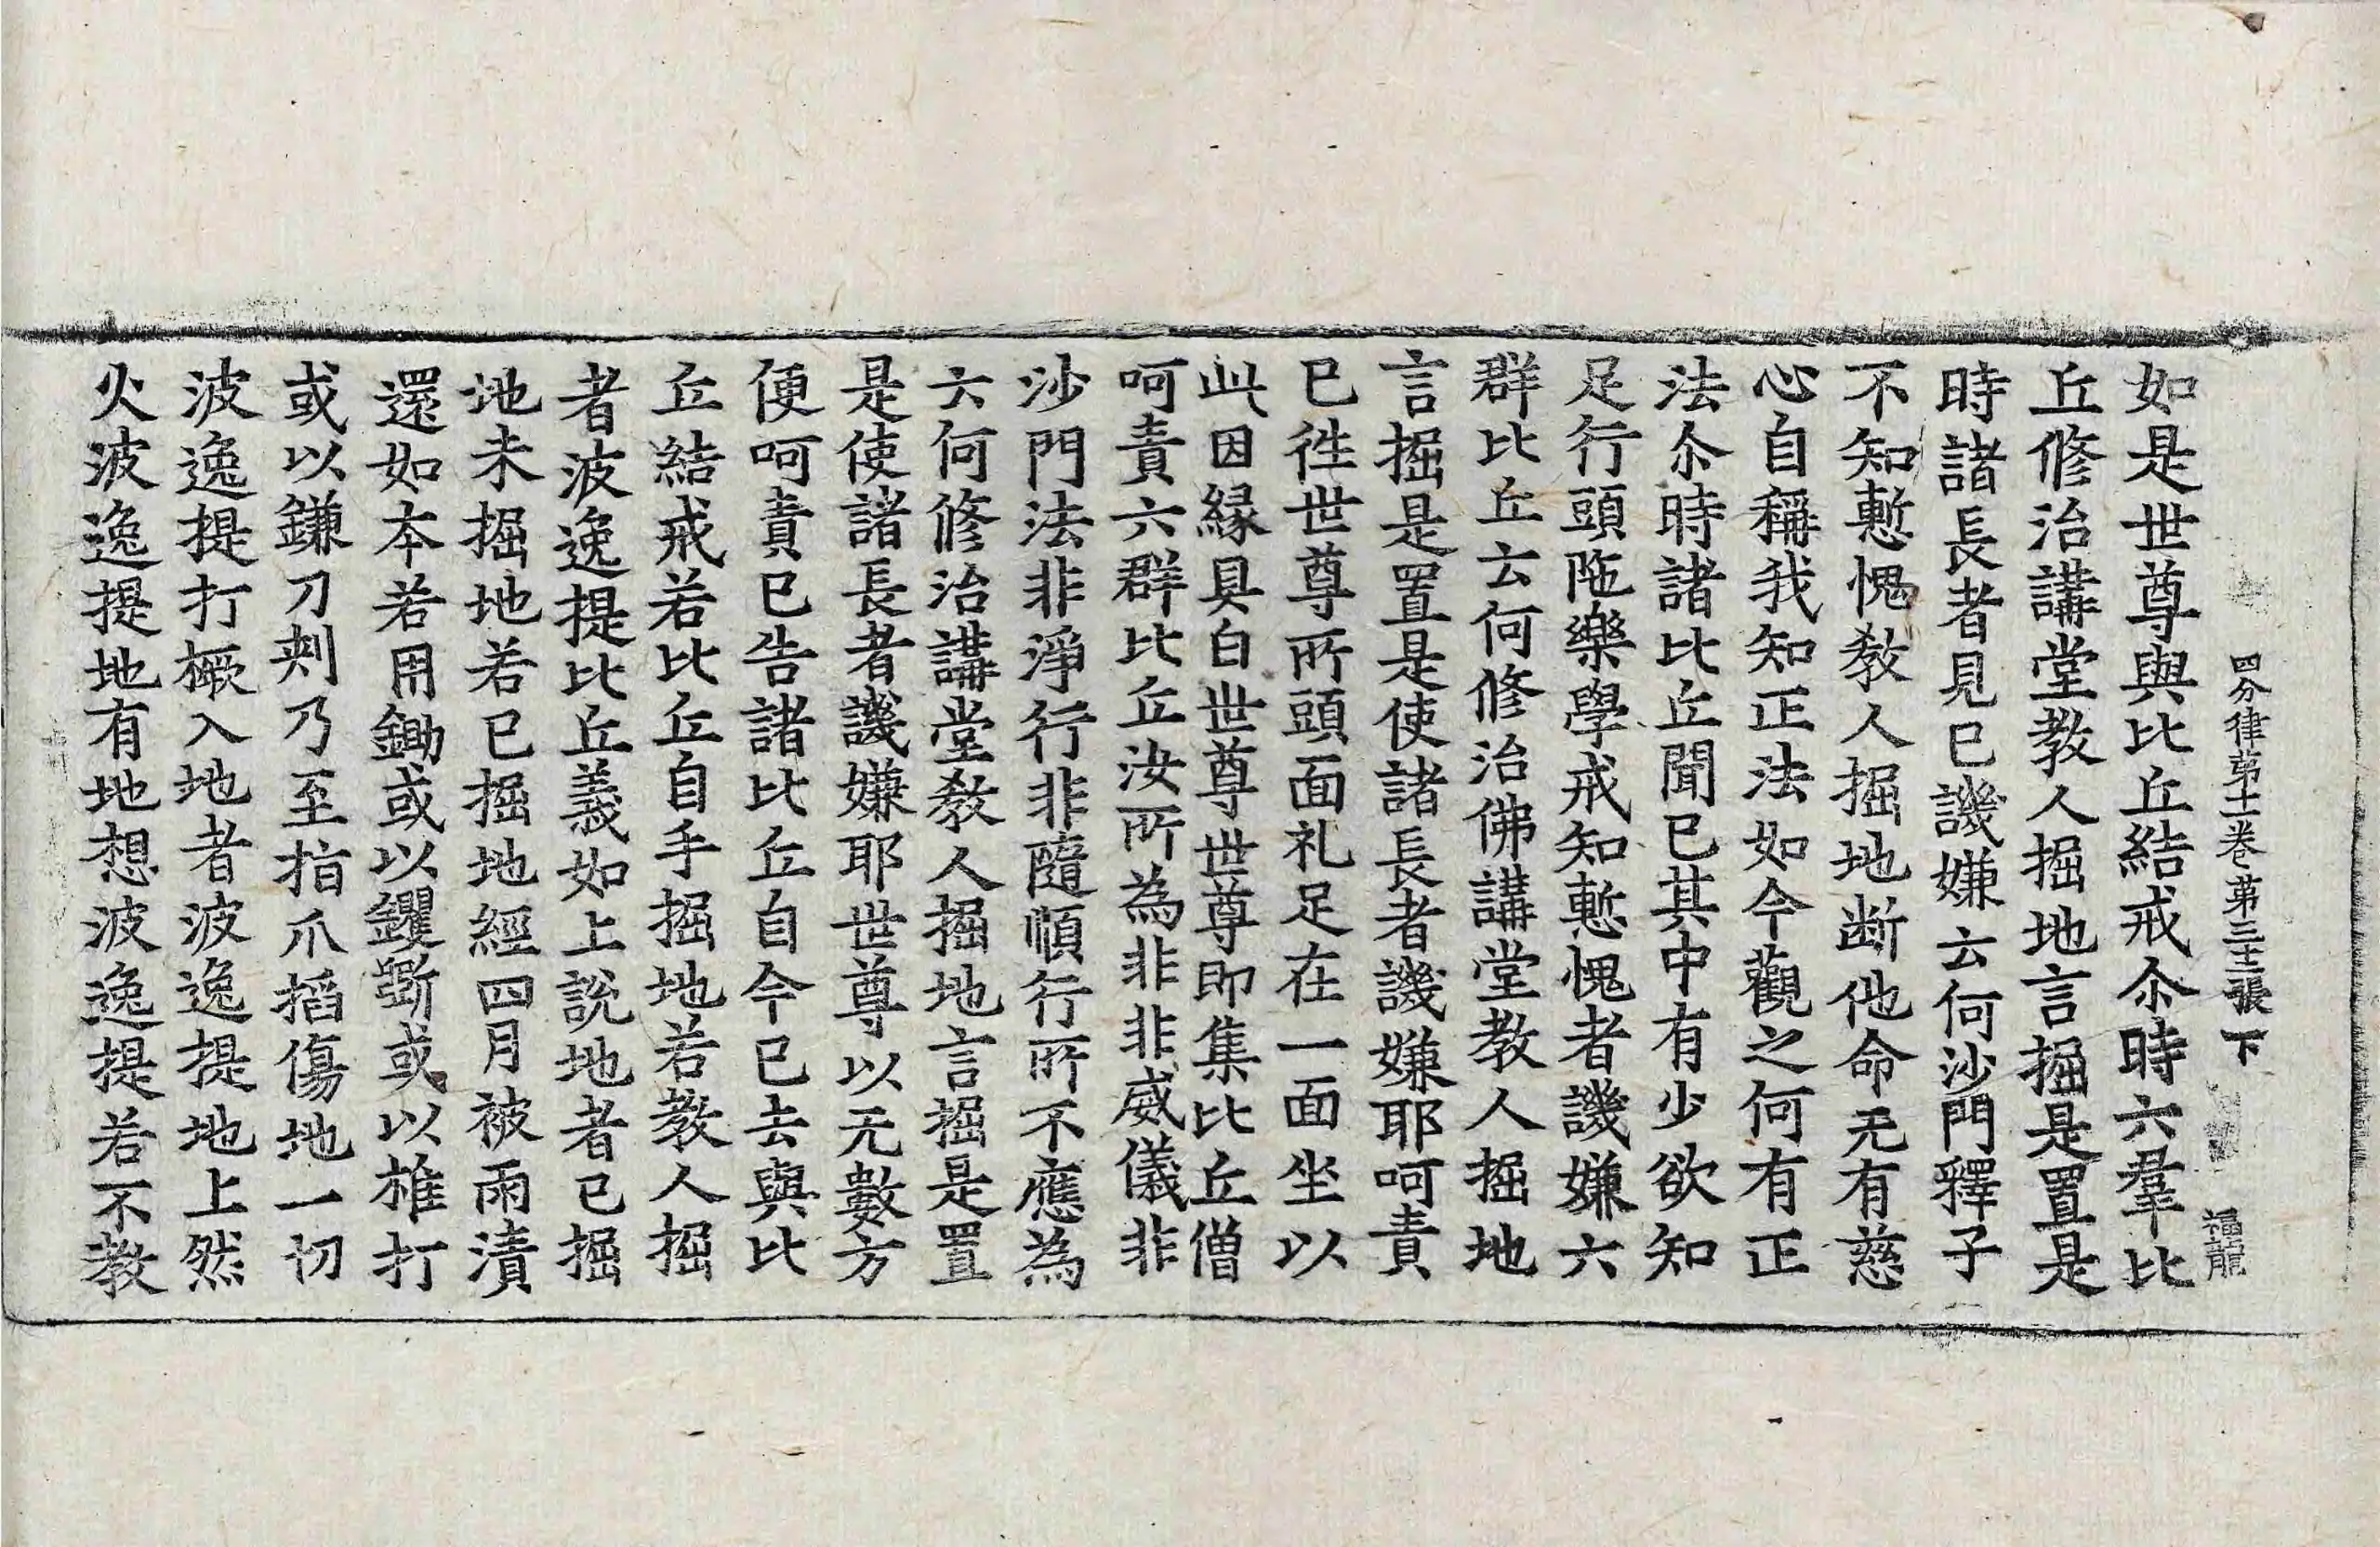 四分律苐十一卷 苐三十二張 下 福龍
如是世尊與比丘結戒尒時六羣比
丘修治講堂教人掘地言掘是置是
時諸長者見已譏嫌云何沙門釋子
不知慙愧教人掘地断他命无有慈
心自稱我知正法如今觀之何有正
法尒時諸比丘聞已其中有少欲知
足行頭陁樂學戒知慙愧者譏嫌六
群比丘云何修治佛講堂教人掘地
言掘是置是使諸長者譏嫌耶呵責
已徃世尊所頭面礼足在一面坐以
此因縁具白世尊世尊即集比丘僧
呵責六群比丘汝所為非非威儀非
沙門法非淨行非隨順行所不應為
云何修治講堂教人掘地言掘是置
是使諸長者譏嫌耶世尊以无數方
便呵責已告諸比丘自今已去與比
丘結戒若比丘自手掘地若教人掘
者波逸提比丘義如上說地者已掘
地未掘地若已掘地經四月被雨漬
還如本若用鋤或以钁斸或以椎打
或以鎌刀刺乃至指爪搯傷地一切
波逸提打橛入地者波逸提地上然
火波逸提地有地想波逸提若不教